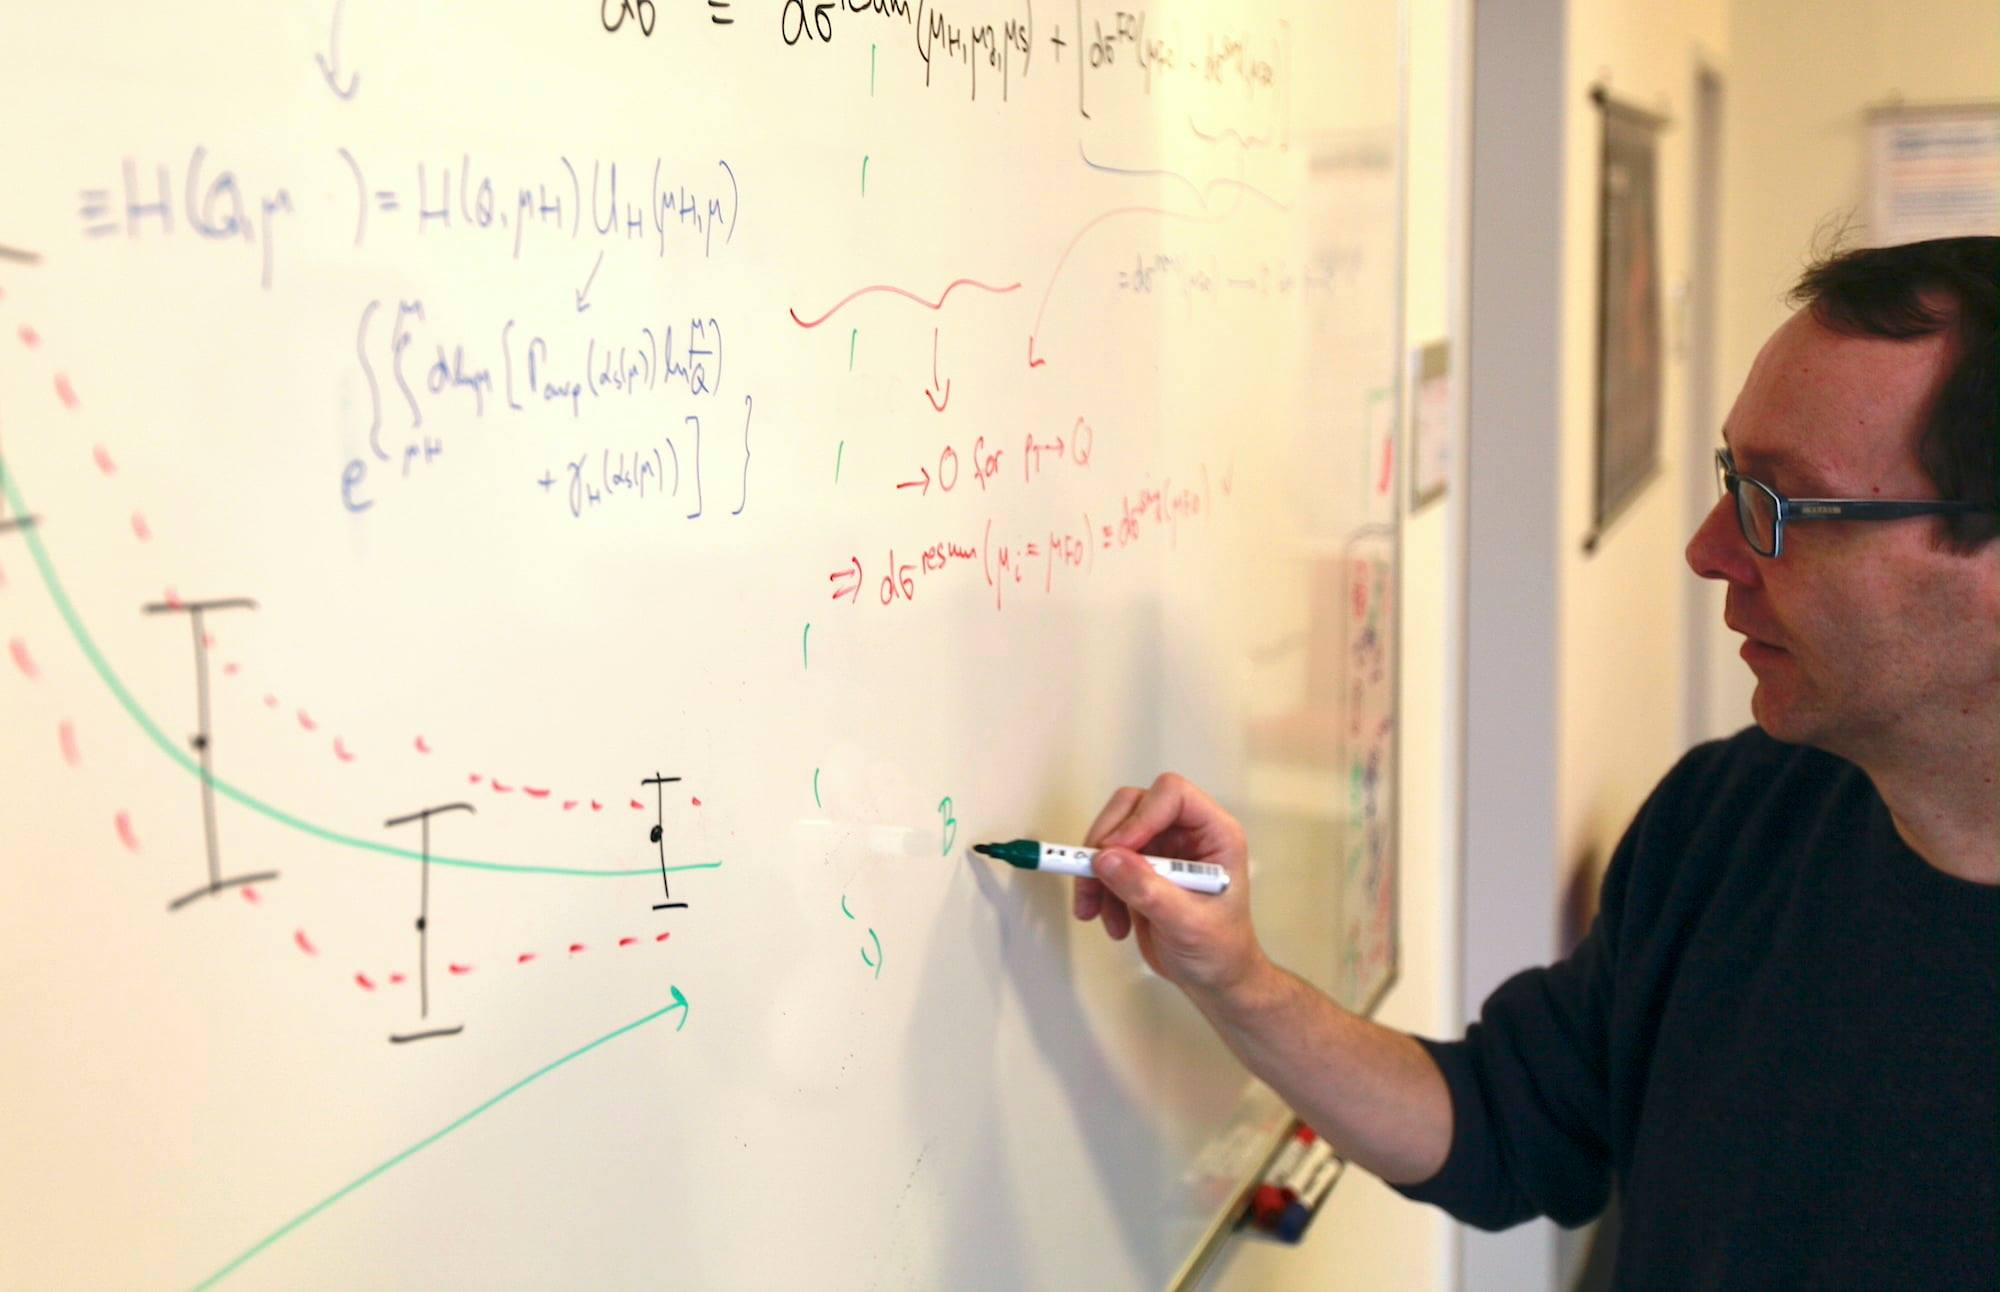 dσ = dσ^resum(μH, μJ, μS) + [dσ^FO(μFO) - dσ^sing(μFO)]
≡ H(Q, μ ) = H(Q, μH) U_H(μH, μ)
e^{∫_μH^μ dlnμ [Γcusp(αs(μ)) ln μ/Q
+ γ_H(αs(μ))] }
→ 0 for PT → Q
⇒ dσ^resum(μi = μFO) = dσ^sing(μFO) ✓
B